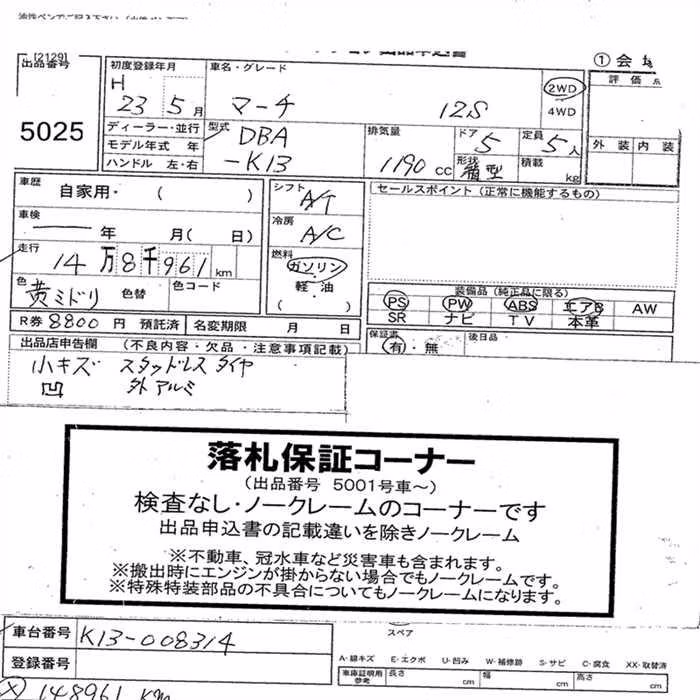 [2129]
出品番号
5025
① 会場
評価点
外装 内装
初度登録年月
H
23 5月
車名・グレード
マーチ 12S
2WD
4WD
ディーラー・並行
モデル年式 年
ハンドル 左・右
型式
DBA
-K13
排気量
1190 CC
ドア
5
形状
箱型
定員
5人
積載
kg
車歴 自家用・( )
車検
年 月( 日)
走行
14万8千961km
色
黄ミドリ 色替 色コード
R券 8800円 預託済 名変期限 月 日
シフト
A/T
冷房
A/C
燃料
ガソリン
軽油
( )
セールスポイント(正常に機能するもの)
装備品(純正品に限る)
PS PW ABS エアB AW
SR ナビ TV 本革
保証書
有・無
後日品
出品店申告欄 (不良内容・欠品・注意事項記載)
小キズ スタッドレスタイヤ
凹 外アルミ
落札保証コーナー
(出品番号 5001号車～)
検査なし・ノークレームのコーナーです
出品申込書の記載違いを除きノークレーム
※不動車、冠水車など災害車も含まれます。
※搬出時にエンジンが掛からない場合でもノークレームです。
※特殊特装部品の不具合についてもノークレームになります。
車台番号 K13-008314
登録番号
スペア
A・線キズ E・エクボ U・凹み W・補修跡 S・サビ C・腐食 XX・取替済
車庫証明用
参考
長さ cm 幅 cm 高さ cm
148961 KM